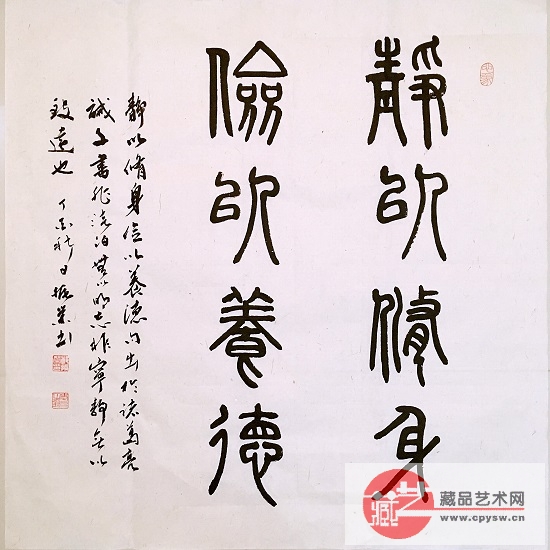 靜以脩身
儉以養德
静以脩身俭以養德句出於诸葛亮
誡子書非淡泊無以明志非寧静無以
致遠也 秋日 书
藏艺
藏品艺术网
www.cpysw.cn